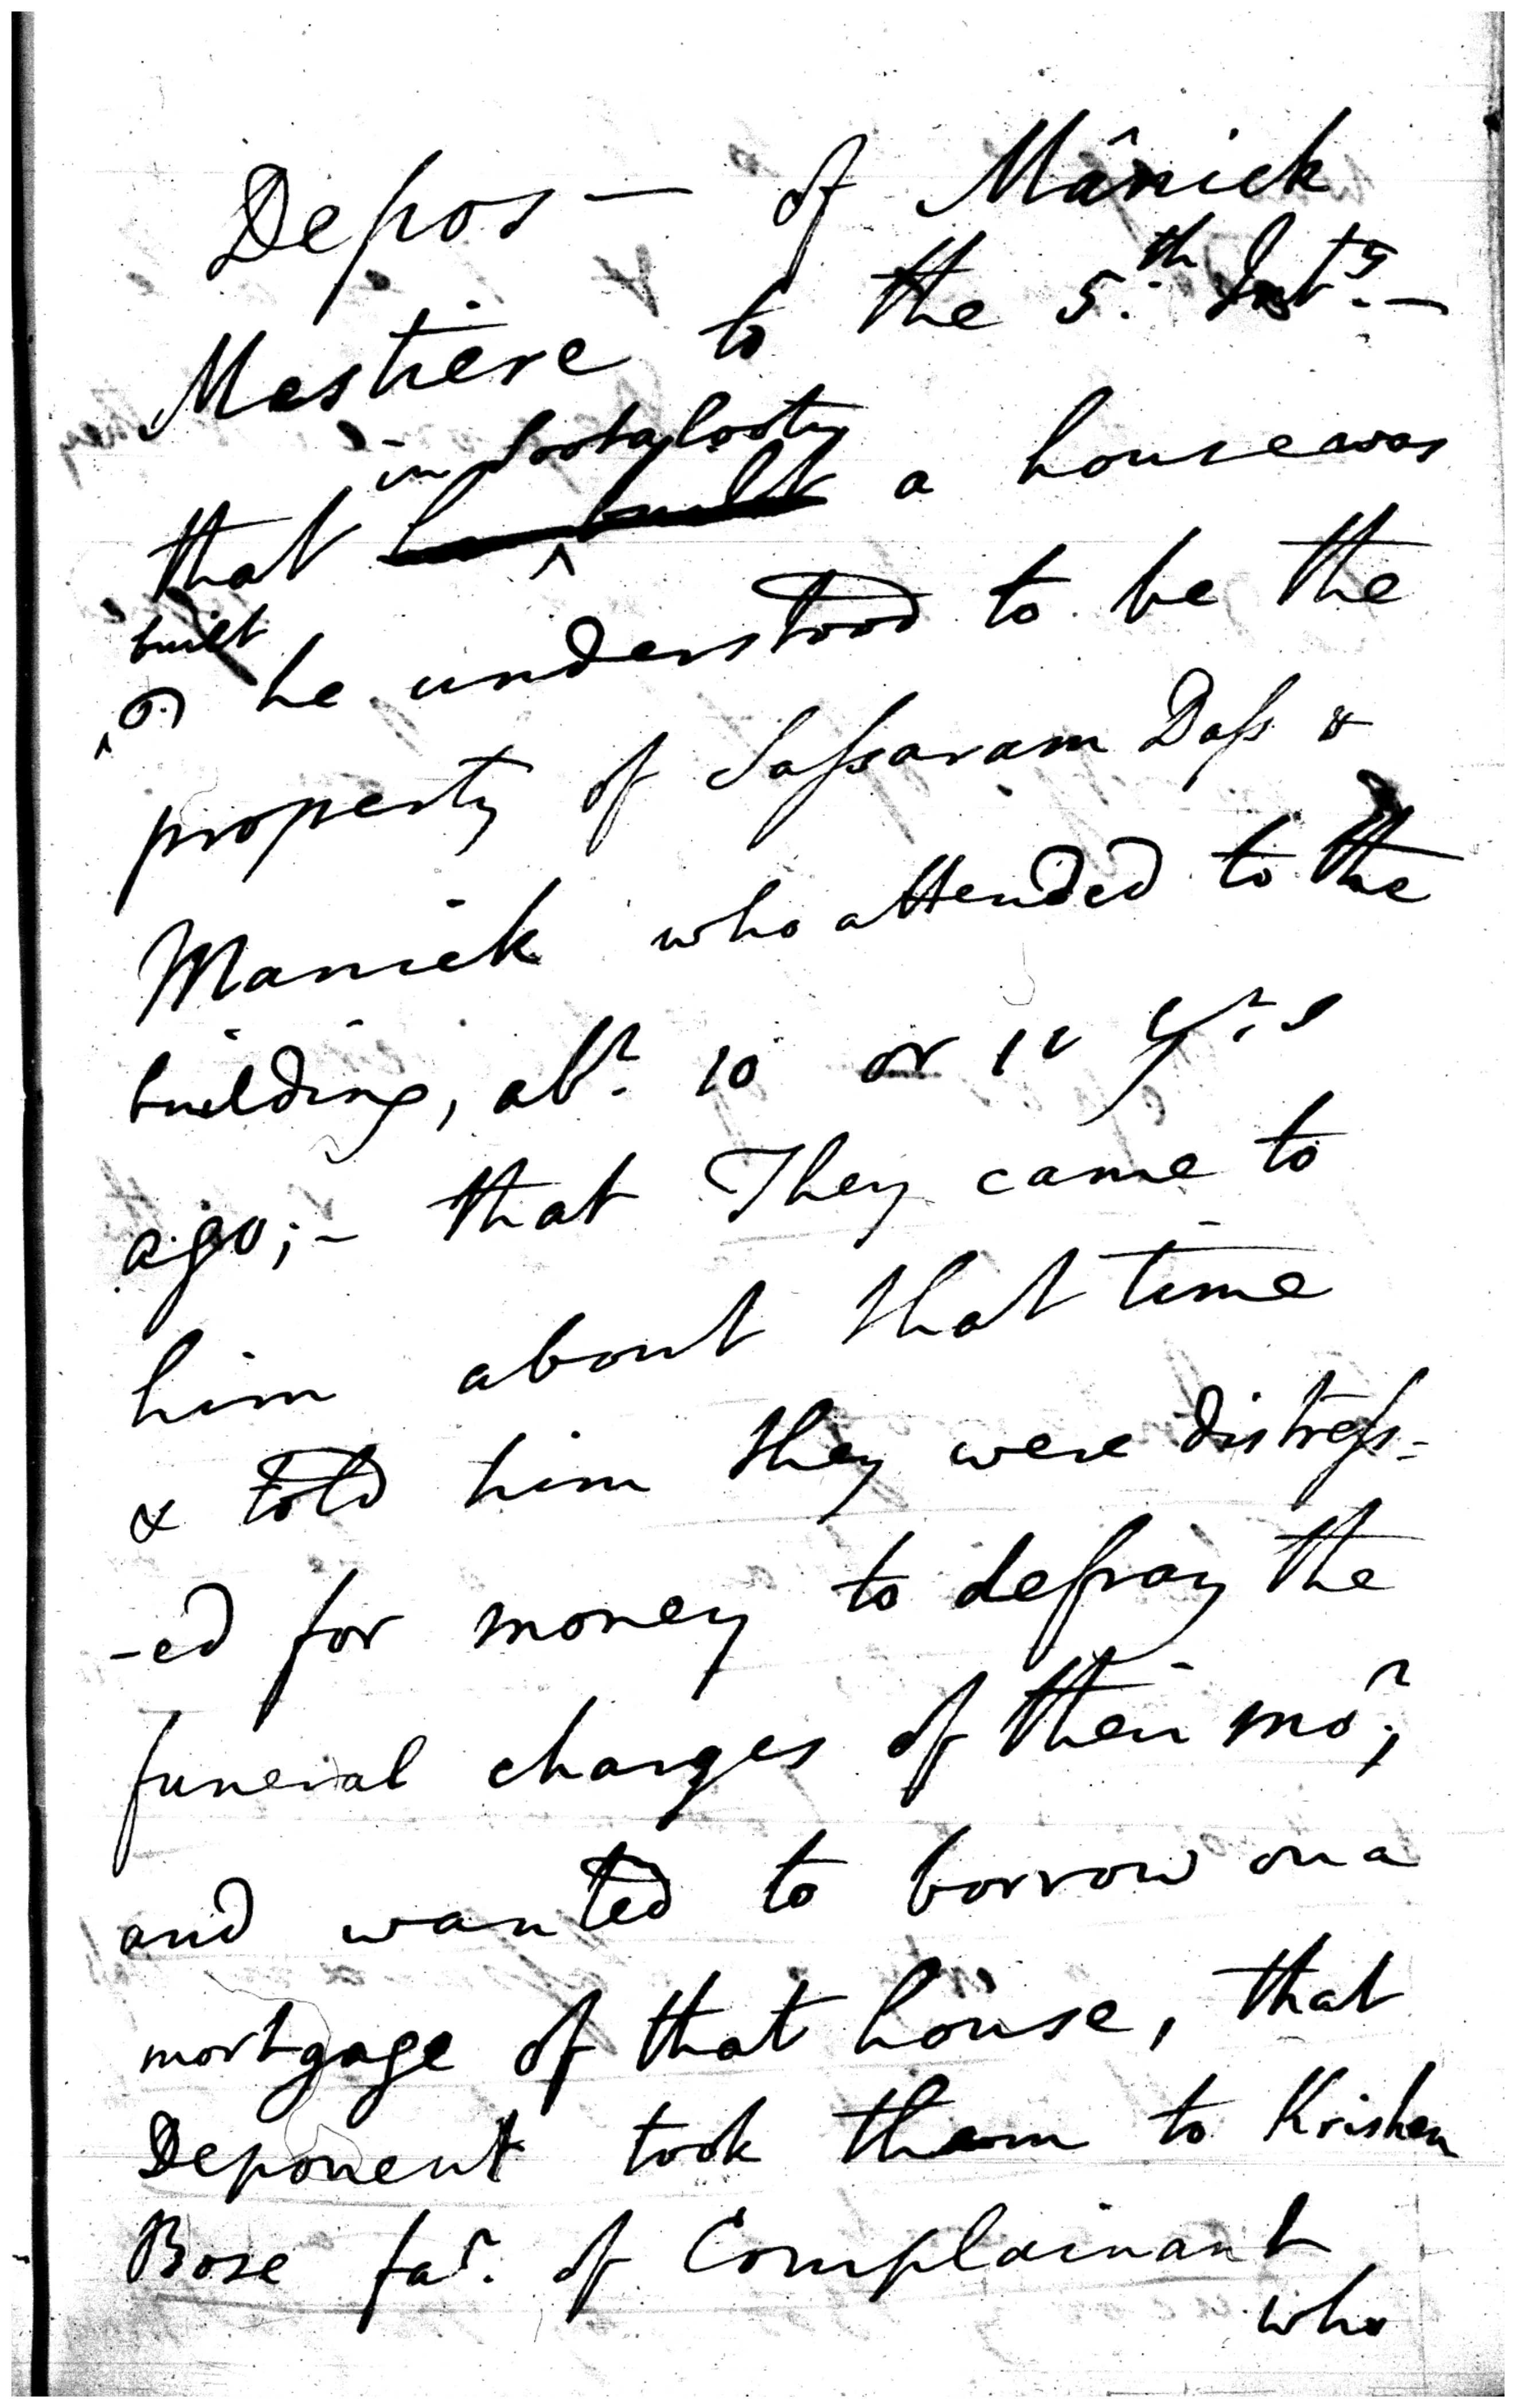 Depos— of Mânick
Mestiere to the 5.th Int.s —
in Sootaloota
that a house was
built
he understood to be the
property of Sassaram Dass &
Manick who attended to the
building, abt. 10 or 12 yrs
ago; - that They came to
him about that time
& told him they were distress-
-ed for money to defray the
funeral charges of their mor;
and wanted to borrow on a
mortgage of that house, that
Deponent took them to Krishen
Bose far. of Complainant
who